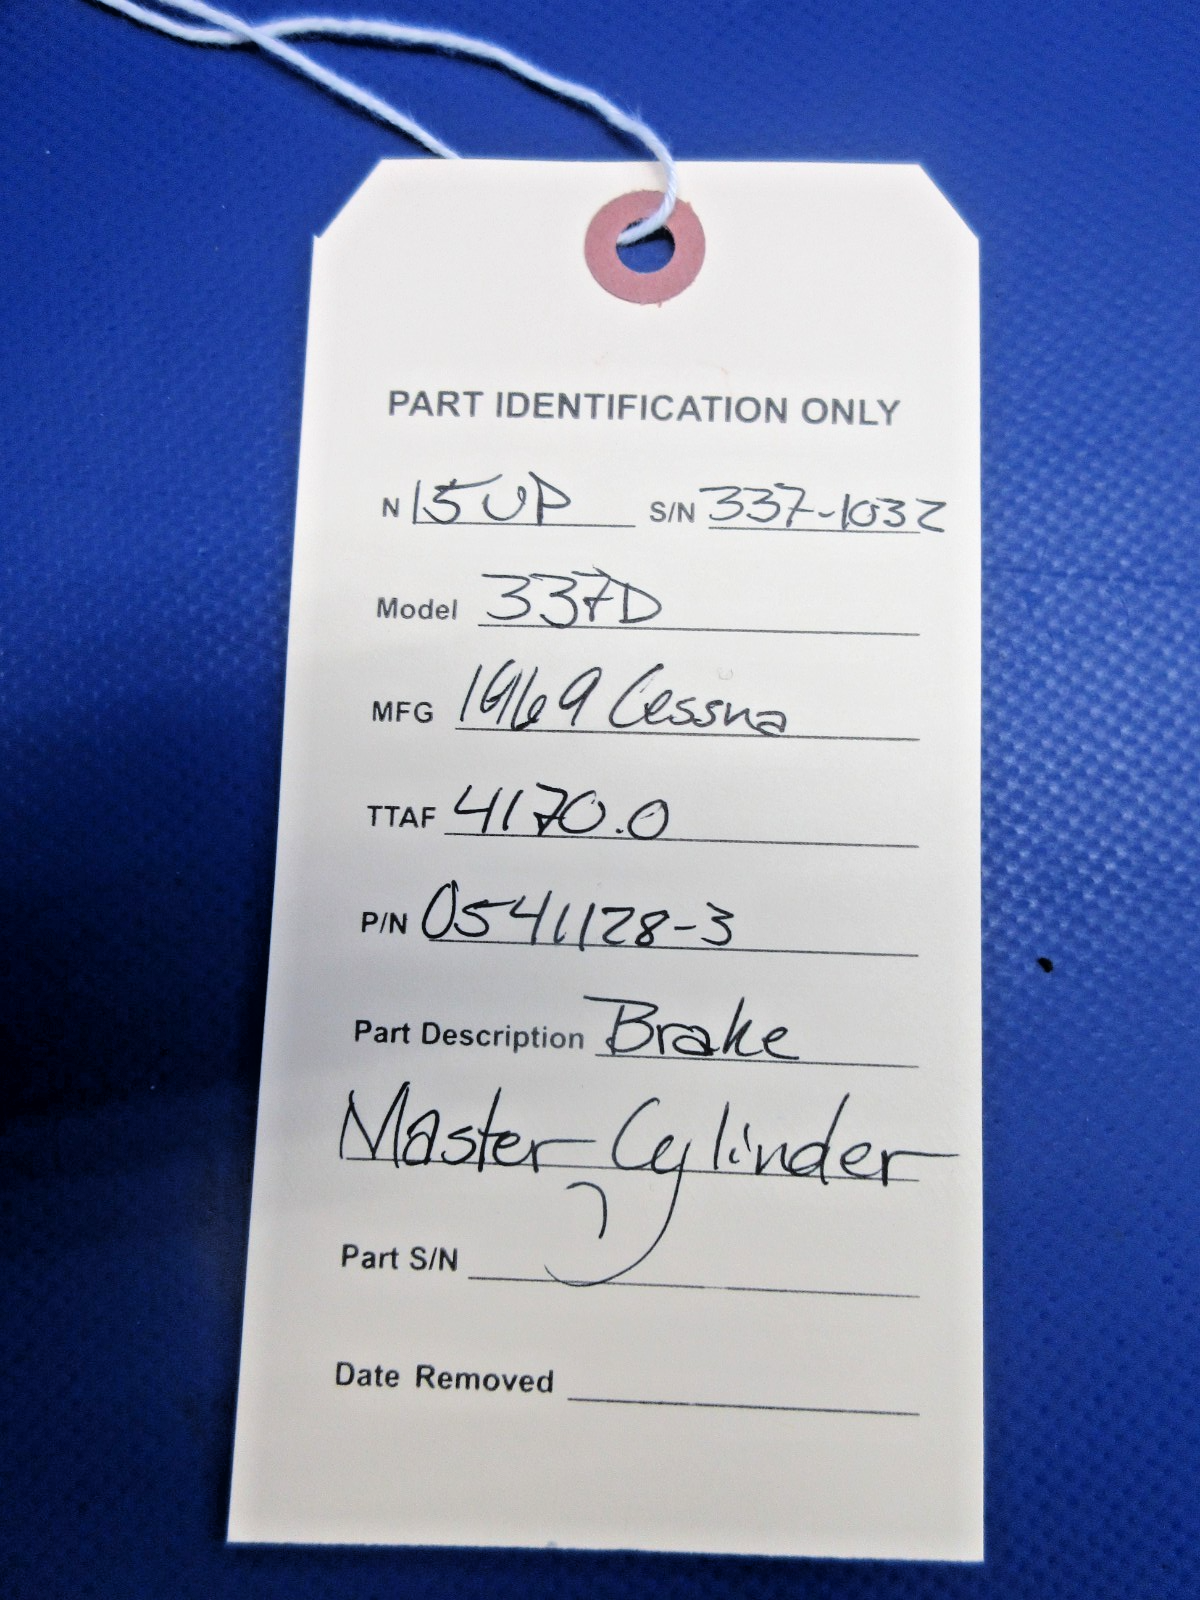 PART IDENTIFICATION ONLY
N 15UP S/N 337-1032
Model 337D
MFG 1969 Cessna
TTAF 4170.0
P/N 0541128-3
Part Description Brake
Master Cylinder
Part S/N
Date Removed